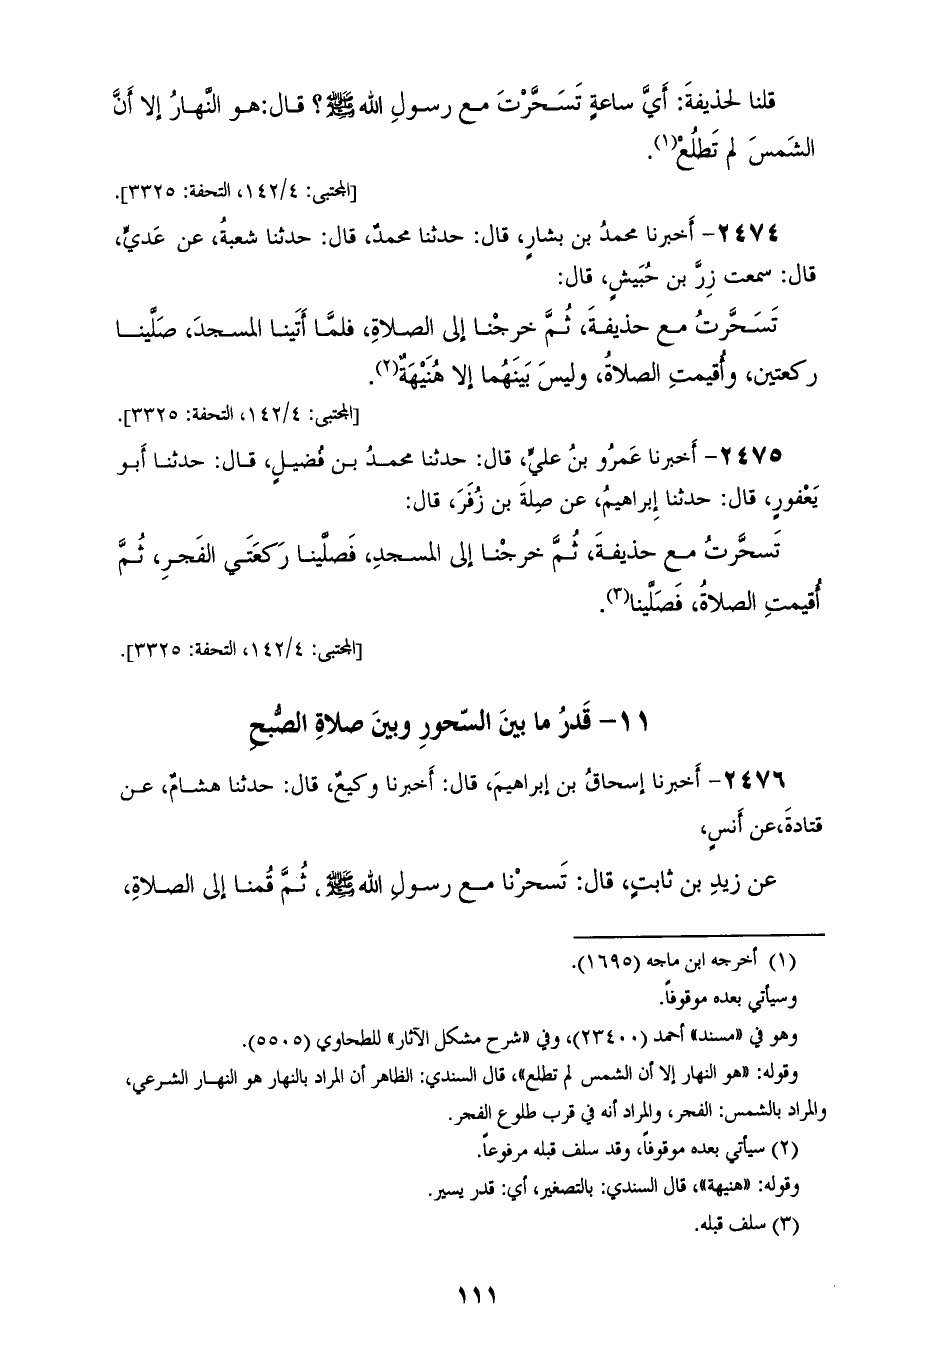 قلنا لحذيفةَ: أَيَّ ساعةٍ تَسَحَّرْتَ مع رسولِ الله ﷺ؟ قال:هو النَّهارُ إلا أَنَّ
الشَمسَ لم تَطلُعْ(١).
[المجتبى: ١٤٢/٤، التحفة: ٣٣٢٥].
٢٤٧٤- أَخبرنا محمدُ بن بشارٍ، قال: حدثنا محمدٌ، قال: حدثنا شعبةُ، عن عَديٍّ،
قال: سمعت زِرَّ بن حُبَيشٍ، قال:
تَسَحَّرتُ مع حذيفةَ، ثُمَّ خرجْنا إلى الصلاةِ، فلمَّا أَتَينا المسجدَ، صَلَّينا
ركعتين، وأُقيمتِ الصلاةُ، وليسَ بَينَهُما إلا هُنَيْهَةٌ(٢).
[المجتبى: ١٤٢/٤، التحفة: ٣٣٢٥].
٢٤٧٥- أَخبرنا عَمرُو بنُ عليٍّ، قال: حدثنا محمدُ بن فُضيلٍ، قال: حدثنا أَبو
يَعْفورٍ، قال: حدثنا إبراهيمُ، عن صِلةَ بن زُفَرَ، قال:
تَسحَّرتُ مع حذيفةَ، ثُمَّ خرجْنا إلى المسجدِ، فَصلَّينا رَكعَتَي الفَجرِ، ثُمَّ
أُقيمتِ الصلاةُ، فَصَلَّينا(٣).
[المجتبى: ١٤٢/٤، التحفة: ٣٣٢٥].
١١- قَدرُ ما بينَ السّحورِ وبينَ صلاةِ الصُّبحِ
٢٤٧٦- أَخبرنا إسحاقُ بن إبراهيمَ، قال: أَخبرنا وكيعٌ، قال: حدثنا هشامٌ، عن
قتادةَ،عن أَنسٍ،
عن زيدِ بن ثابتٍ، قال: تَسحرْنا مع رسولِ الله ﷺ، ثُمَّ قُمنا إلى الصلاةِ،
(١) أخرجه ابن ماجه (١٦٩٥).
وسيأتي بعده موقوفاً.
وهو في «مسند» أحمد (٢٣٤٠٠)، وفي «شرح مشكل الآثار» للطحاوي (٥٥٠٥).
وقوله: «هو النهار إلا أن الشمس لم تطلع»، قال السندي: الظاهر أن المراد بالنهار هو النهار الشرعي،
والمراد بالشمس: الفجر، والمراد أنه في قرب طلوع الفجر.
(٢) سيأتي بعده موقوفاً، وقد سلف قبله مرفوعاً.
وقوله: «هنيهة»، قال السندي: بالتصغير، أي: قدر يسير.
(٣) سلف قبله.
١١١